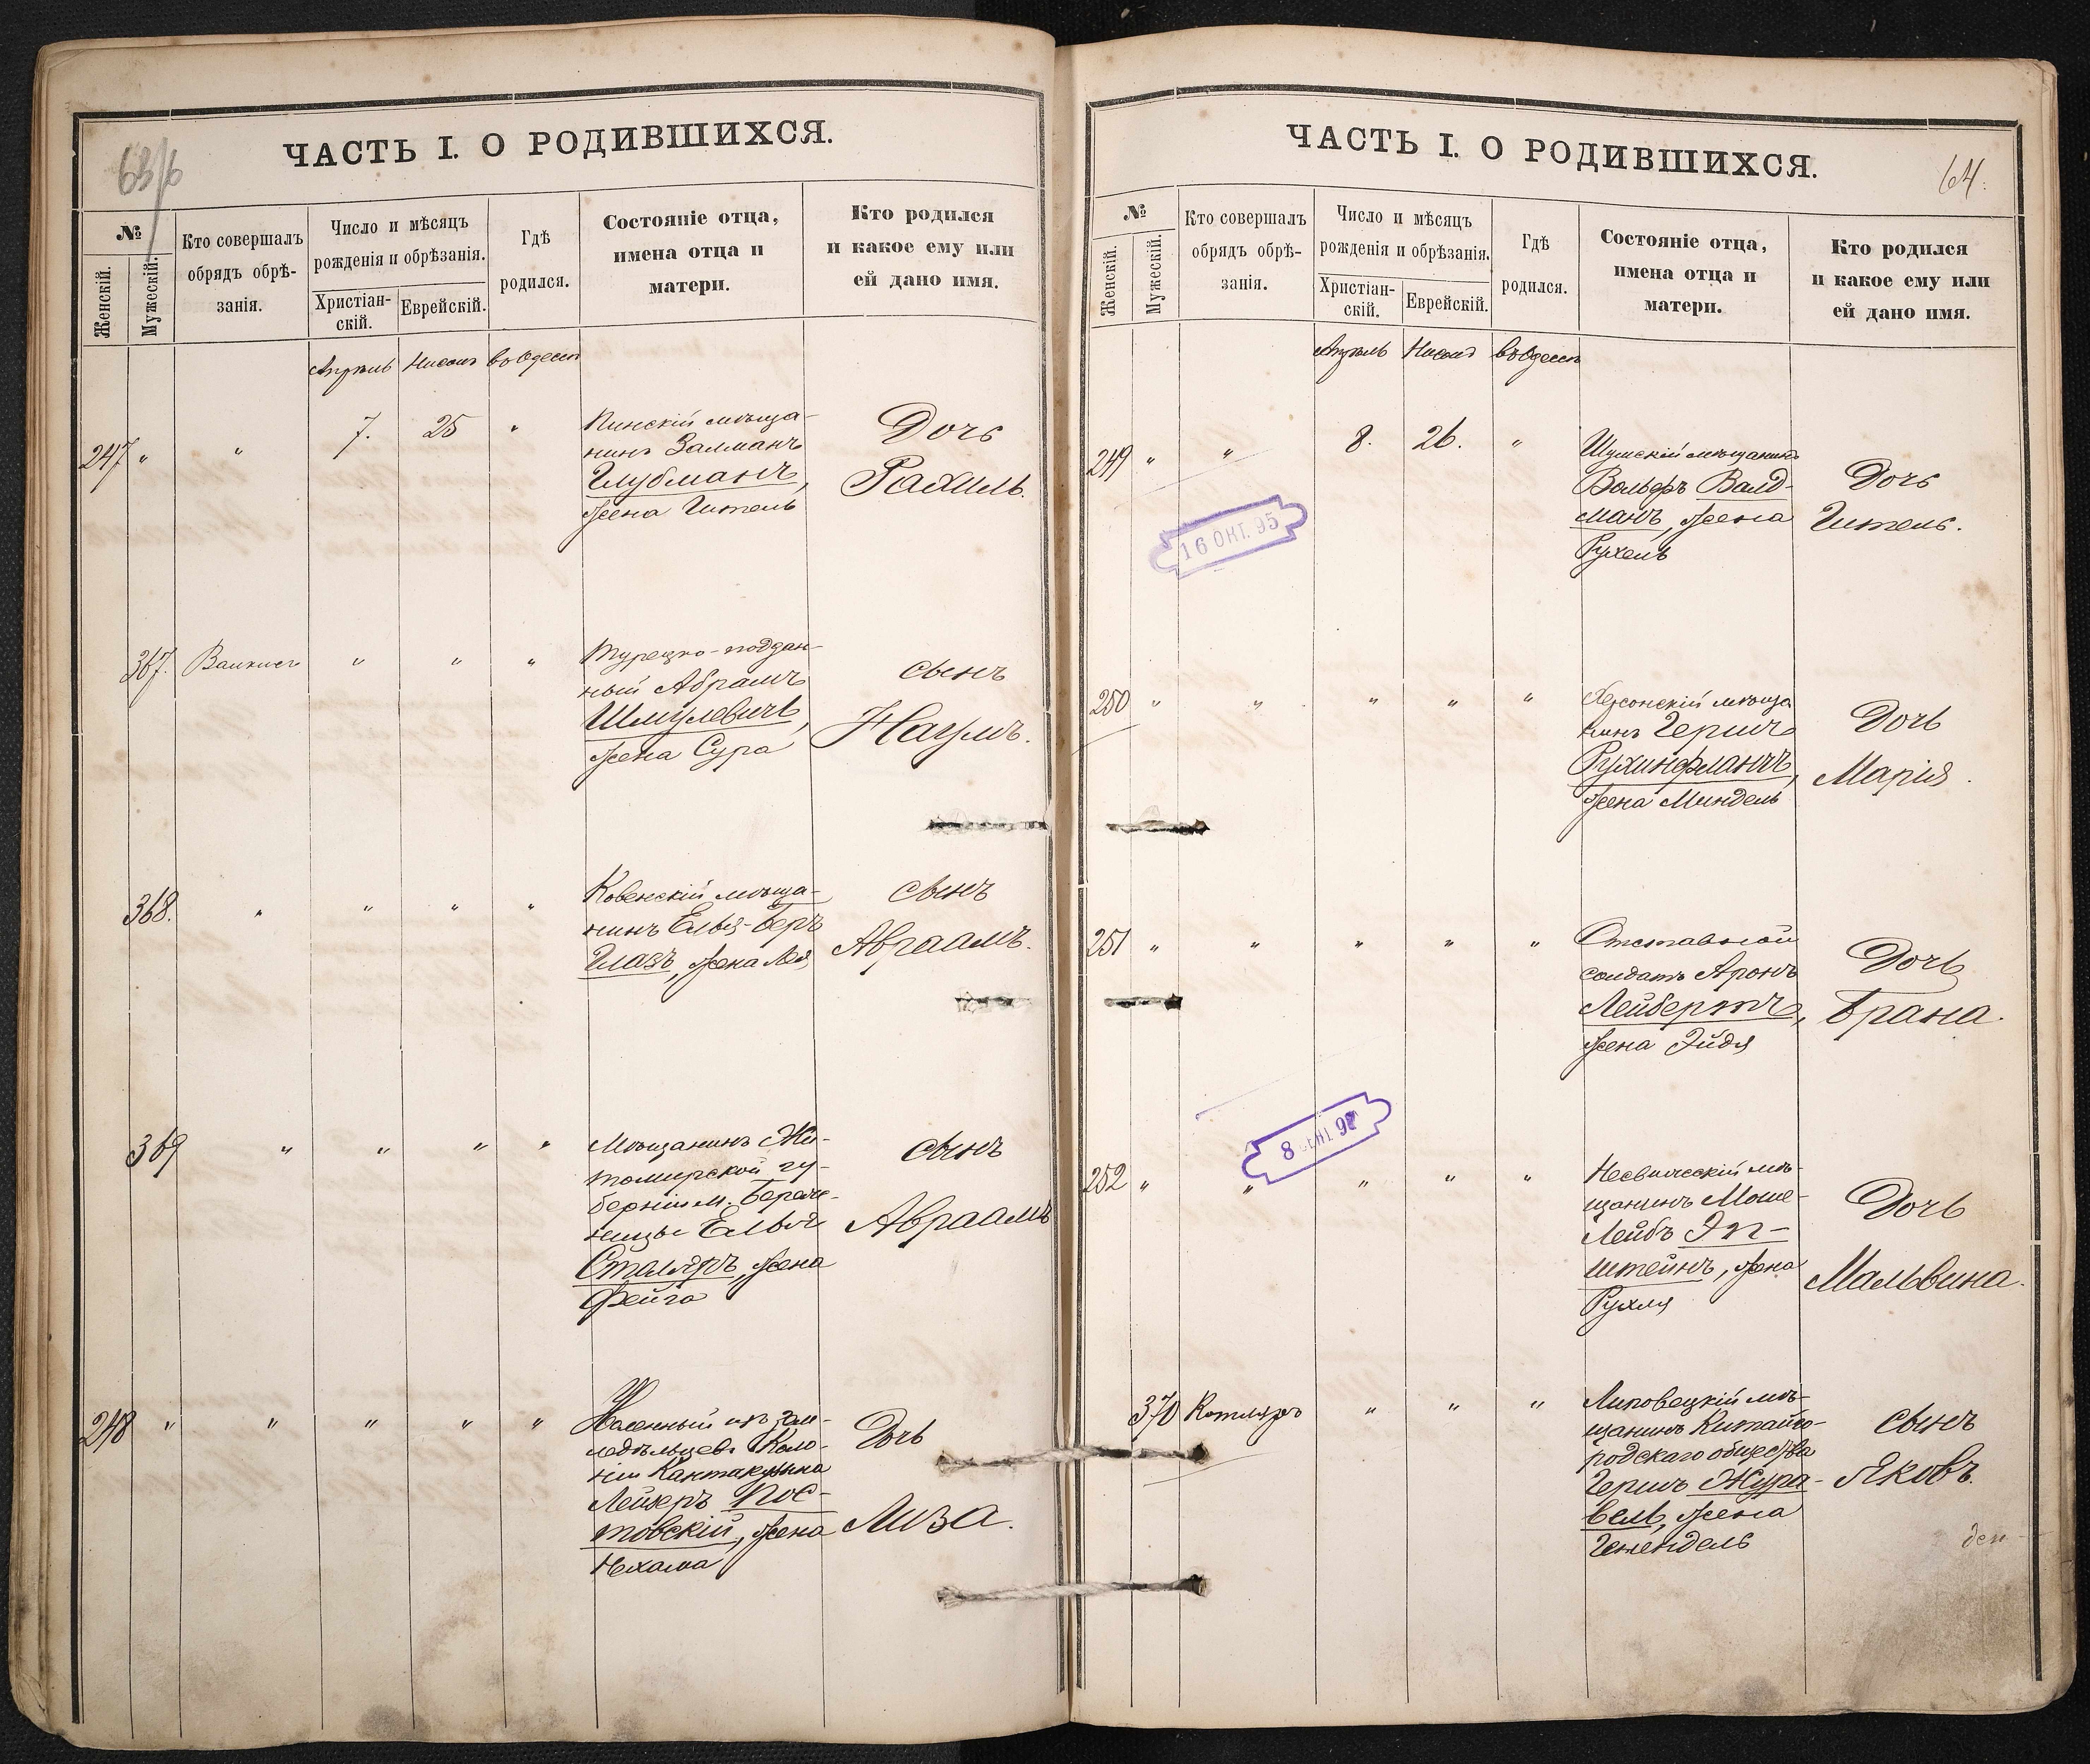 63/б
ЧАСТЬ I. О РОДИВШИХСЯ.
№
Женскій.
Мужескій.
Кто совершалъ
обрядъ обрѣ-
занія.
Число и мѣсяцъ
рожденія и обрѣзанія.
Христіан-
скій.
Еврейскій.
Гдѣ
родился.
Состояніе отца,
имена отца и
матери.
Кто родился
и какое ему или
ей дано имя.
Апрѣль Нисонъ въ Одессѣ
247 " " 7. 25 "
Пинскій мѣща-
нинъ Залманъ
Глубманъ,
жена Гитель
Дочь
Рахиль.
367. " " "
Турецко-поддан-
ный Абрамъ
Шмулевичъ,
жена Сура
сынъ
Наумъ.
368. " " " "
Ковенскій мѣща-
нинъ Елья-Беръ
Глазъ, жена Лея
сынъ
Авраамъ.
369 " " " "
Мѣщанинъ Жи-
томирской гу-
берніи м.
Ельи
Столяръ, жена
Фейга
сынъ
Авраамъ
248 " " " " "
изъ зем-
ледѣльцевъ Коло-
ніи Кантакузина
Лейзеръ Пос-
товскій, жена
Нехама
Дочь
Лиза.
64.
ЧАСТЬ I. О РОДИВШИХСЯ.
№
Женскій.
Мужескій.
Кто совершалъ
обрядъ обрѣ-
занія.
Число и мѣсяцъ
рожденія и обрѣзанія.
Христіан-
скій.
Еврейскій.
Гдѣ
родился.
Состояніе отца,
имена отца и
матери.
Кто родился
и какое ему или
ей дано имя.
Апрѣль Нисонъ въ Одессѣ
249 " " 8. 26. "
Шумскій мѣщанинъ
Вольфъ Валд-
манъ, жена
Рухель
Дочь
Гитель.
16 ОКТ. 95
250 " " " " "
Херсонскій мѣща
нинъ Гершъ
Рухинфманъ,
жена Миндель
Дочь
Марія.
251 " " " " "
Отставной
солдатъ Аронъ
Лейбертъ,
жена Эйдя
Дочь
Брана.
8 97
252 " " " " "
Несвижскій мѣ-
щанинъ Моше-
Лейбъ Эп-
штейнъ, жена
Рухля
Дочь
Мальвина.
370 Котляръ " " "
Липовецкій мѣ-
щанинъ Китайго-
родскаго общества
Гершъ Жура-
вель, жена
Генендель
сынъ
Яковъ.